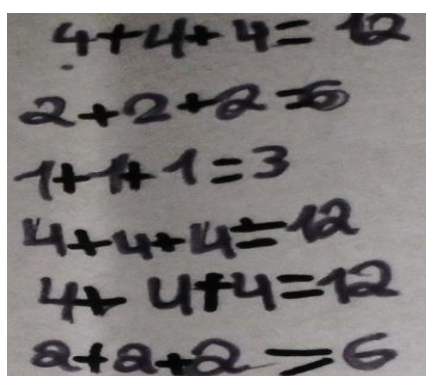 4+4+4=12
2+2+2=6
1+1+1=3
4+4+4=12
4+4+4=12
2+2+2=6